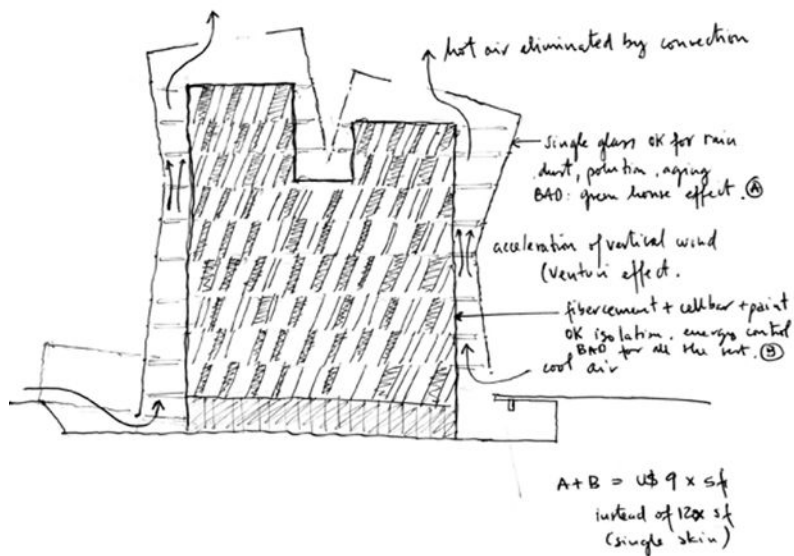 hot air eliminated by convection
single glass OK for rain
dust, polution, aging
BAD: green house effect. Ⓐ
acceleration of vertical wind
(venturi effect.
fibercement + cellbar + paint
OK isolation, energy control
BAD for all the rest. Ⓑ
cool air
A+B = U$ 9 x sf
instead of 12x sf
(single skin)